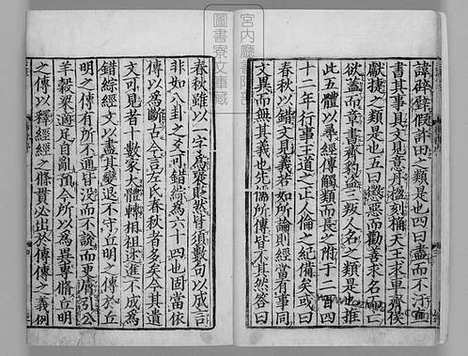 諱辟璧假許田之類是也四曰盡而不汙直
書其事具文見意丹楹刻桷天王求車齊侯
獻捷之類是也五曰懲惡而勸善求名而亡
欲蓋而章書齊豹盜三叛人名之類是也推
此五體以尋經傳觸類而長之附于二百四
十二年行事王道之正人倫之紀備矣或曰
春秋以錯文見義若如所論則經當有事同
文異而無其義也先儒所傳皆不其然荅曰
宮内廳書陵部
圖書寮文庫藏
春秋雖以一字為襃貶然皆須數句以成言
非如八卦之爻可錯綜為六十四也固當依
傳以為斷古今言左氏春秋者多矣今其遺
文可見者十數家大體轉相祖述進不成為
錯綜經文以盡其變退不守丘明之傳於丘
明之傳有所不通皆沒而不說而更膚引公
羊穀梁適足自亂預今所以為異專脩丘明
之傳以釋經經之條貫必出於傳傳之義例